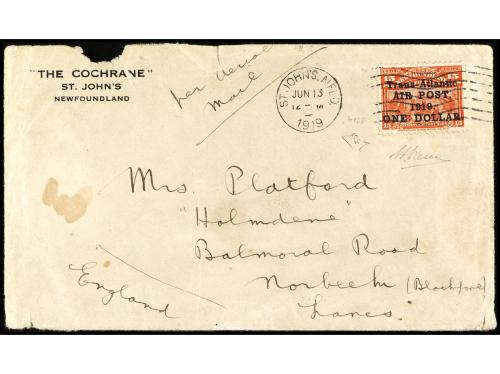 "THE COCHRANE"
ST. JOHN'S
NEWFOUNDLAND
per Aerial
Mail
ST. JOHN'S, NFLD
JUN 13
12 - M
1919
15 15
Trans-Atlantic
AIR POST,
1919.
ONE DOLLAR.
Mrs. Platford
"Holmdene"
Balmoral Road
Norbeck (Blackpool)
Lancs.
England